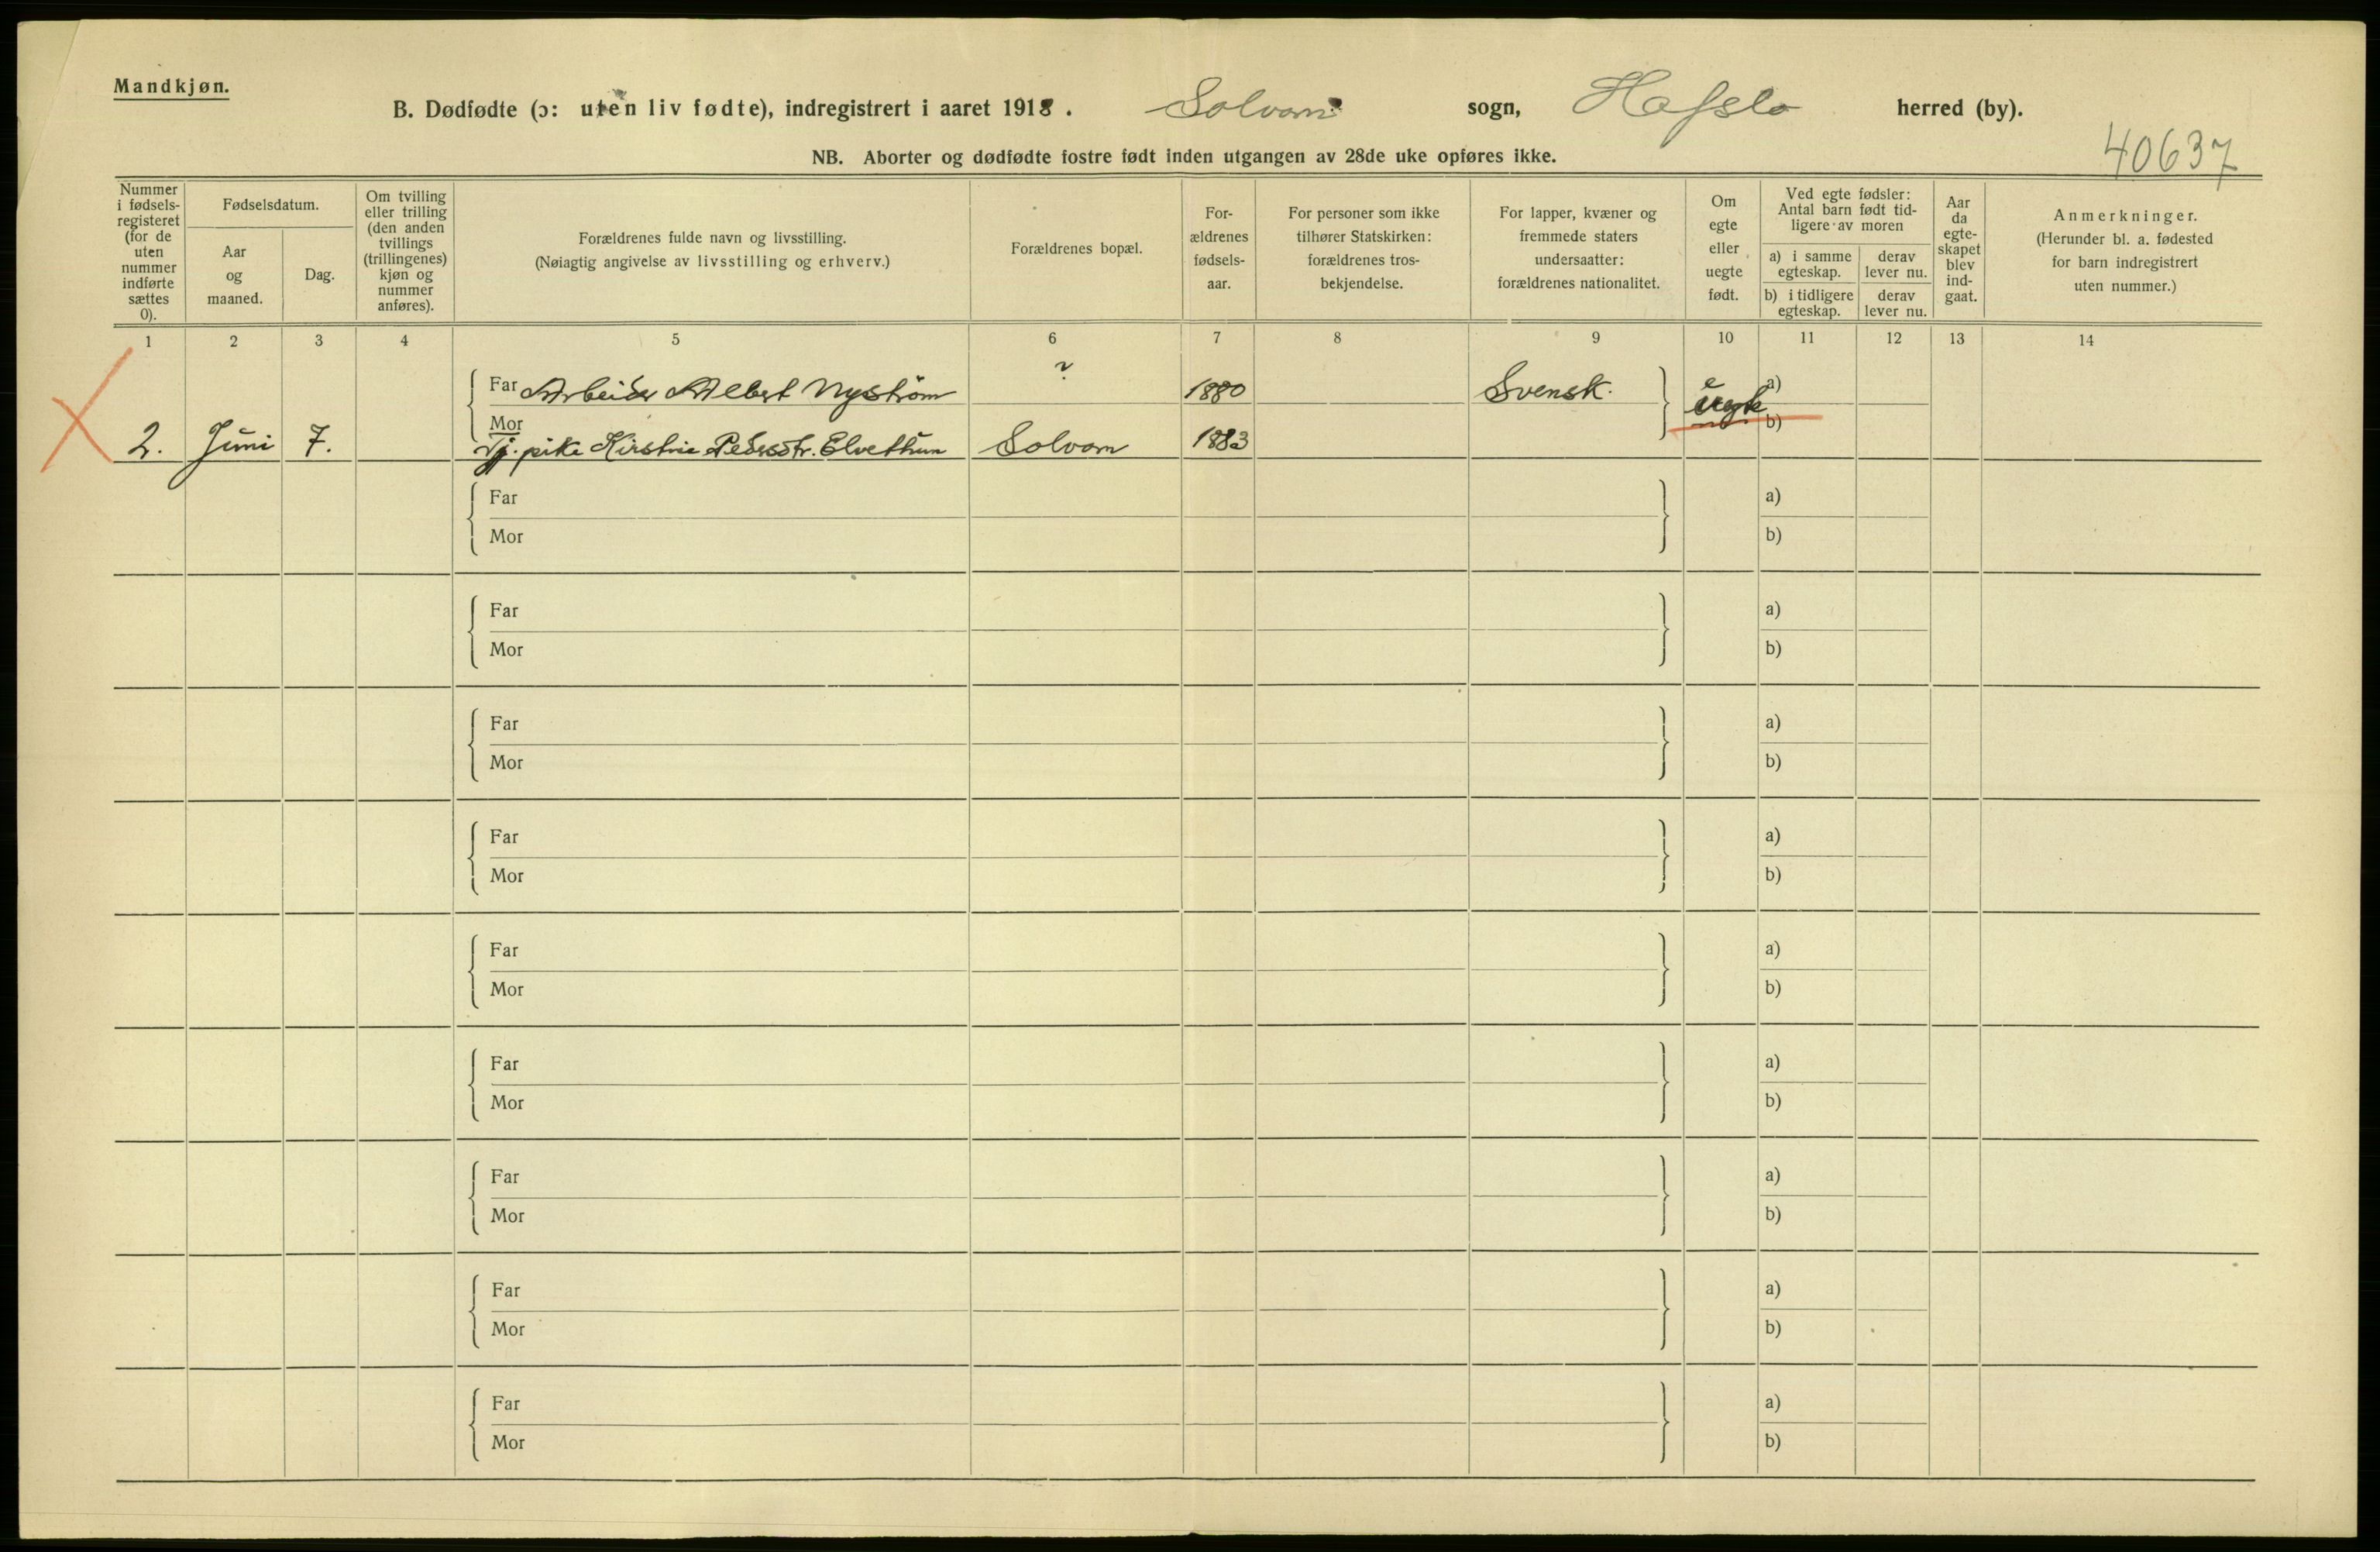 Mandkjøn.
B. Dødfødte (ɔ: uten liv fødte), indregistrert i aaret 1918. Solvorn sogn, Hafslo herred (by).
40637
NB. Aborter og dødfødte fostre født inden utgangen av 28de uke opføres ikke.
Nummer i fødsels-registeret (for de uten nummer indførte sættes 0).
Fødselsdatum.
Aar og maaned.
Dag.
Om tvilling eller trilling (den anden tvillings (trillingenes) kjøn og nummer anføres).
Forældrenes fulde navn og livsstilling.
(Nøiagtig angivelse av livsstilling og erhverv.)
Forældrenes bopæl.
For-ældrenes fødsels-aar.
For personer som ikke tilhører Statskirken: forældrenes tros-bekjendelse.
For lapper, kvæner og fremmede staters undersaatter: forældrenes nationalitet.
Om egte eller uegte født.
Ved egte fødsler: Antal barn født tid-ligere av moren
a) i samme egteskap.
derav lever nu.
b) i tidligere egteskap.
derav lever nu.
Aar da egte-skapet blev ind-gaat.
Anmerkninger.
(Herunder bl. a. fødested for barn indregistrert uten nummer.)
1 2 3 4 5 6 7 8 9 10 11 12 13 14
Far Arbeider Albert Nyström ? 1880 Svensk. a)
2. Juni 7. Mor Tj. pike Kirstine Pedersdtr. Elvethun Solvorn 1883 uegte b)
Far a)
Mor b)
Far a)
Mor b)
Far a)
Mor b)
Far a)
Mor b)
Far a)
Mor b)
Far a)
Mor b)
Far a)
Mor b)
Far a)
Mor b)
Far a)
Mor b)